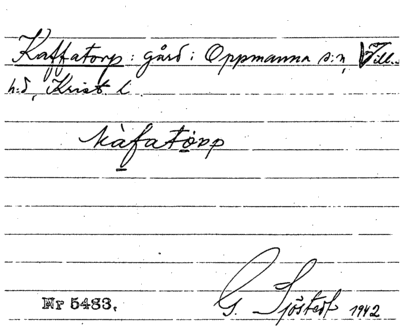 Kaffatorp: gård i Oppmanna s:n, Vill.
h:d, Krist. l.
kàfatòrp
Nr 5483.
G. Sjöstedt 1942